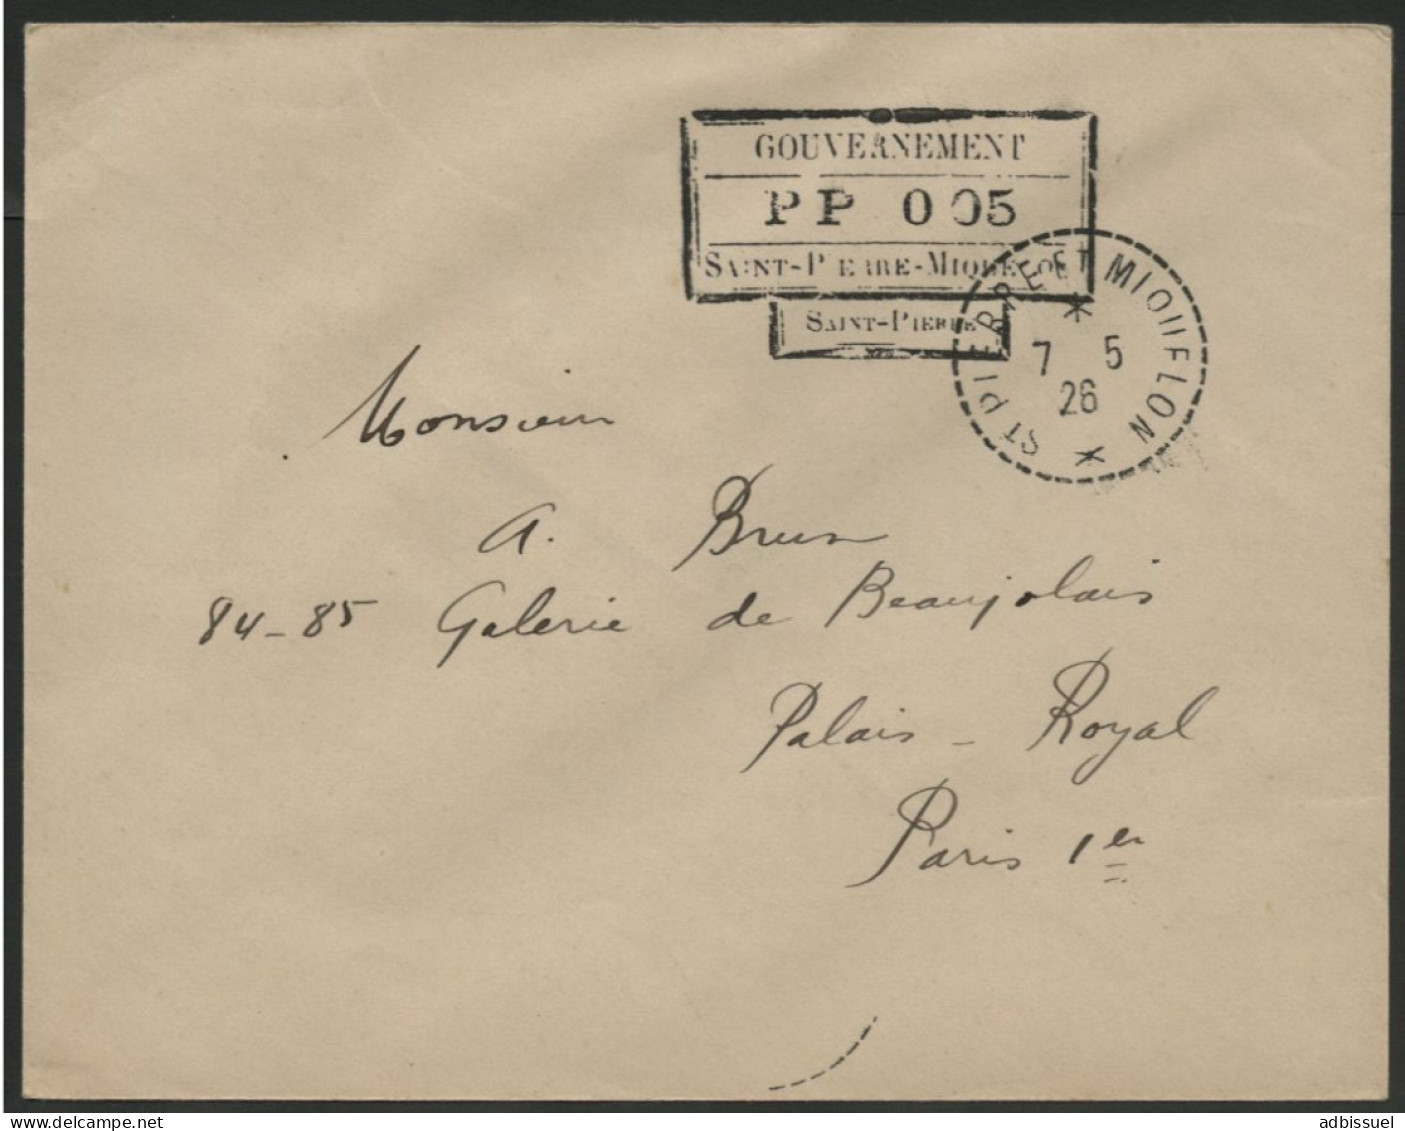 GOUVERNEMENT
PP 0 05
SAINT-PIERRE-MIQUELON
SAINT-PIERRE
ST PIERRE ET MIQUELON
7 5
26
Monsieur
A. Brun
84-85 Galerie de Beaujolais
Palais-Royal
Paris 1er
delcampe.net
adbissuel